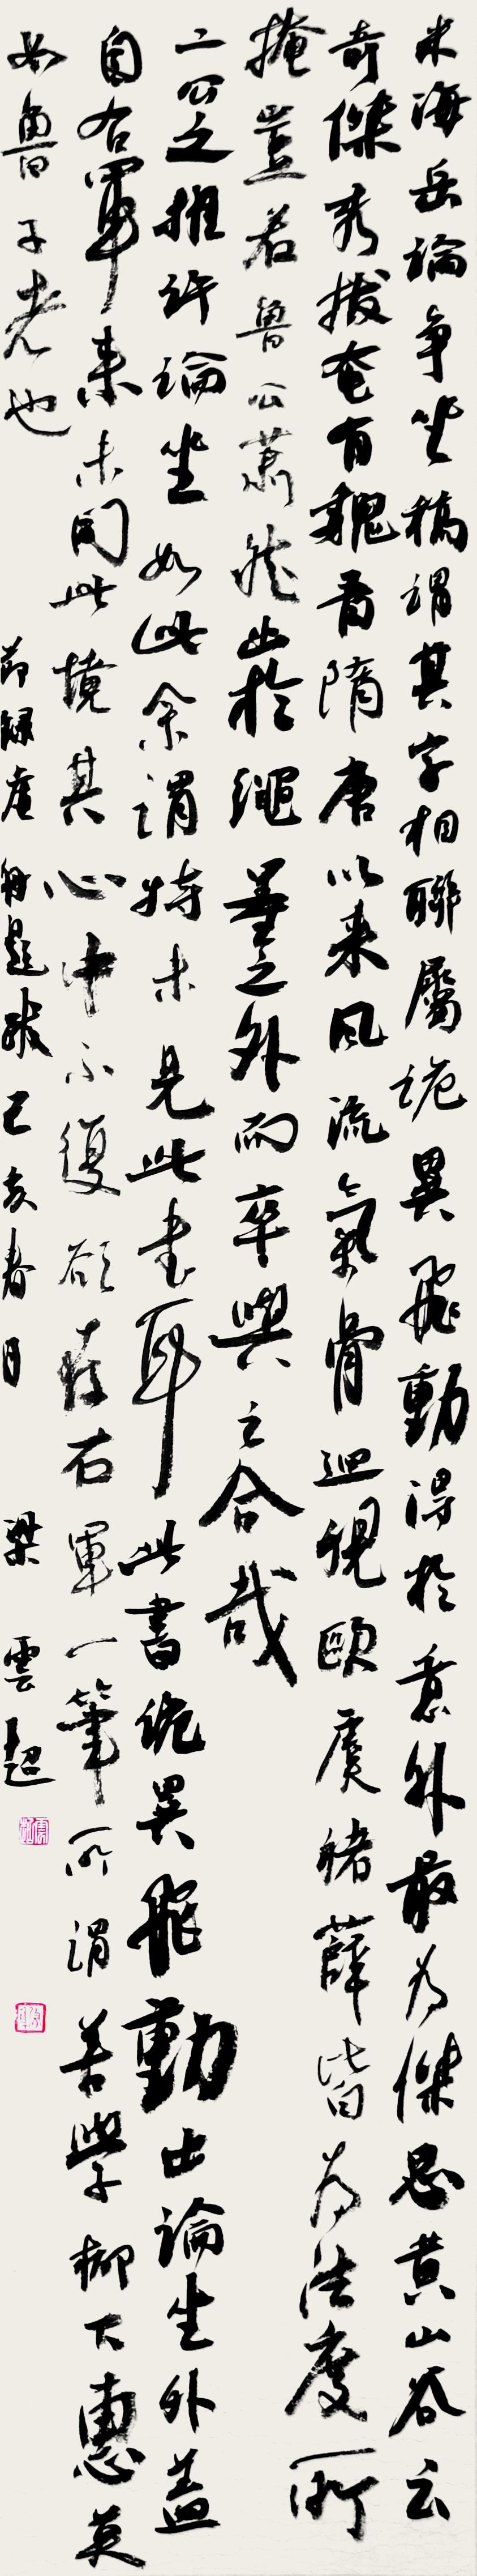 米海岳論争坐稿謂其字相聯屬詭異飛動得於意外最為傑思黄山谷云
奇傑秀拔奄有魏晋隋唐以来風流氣骨迴視歐虞褚薛皆為法度所
掩豈若魯公蕭然出於繩墨之外而卒與之合哉
二公之推許論坐如此余謂特未見此書耳此書詭異飛動出論坐外盖
自右軍来未開此境其心中不復欲存右軍一筆所謂善學柳下惠莫
如魯子者也
節録 題跋己亥春日 梁雲超